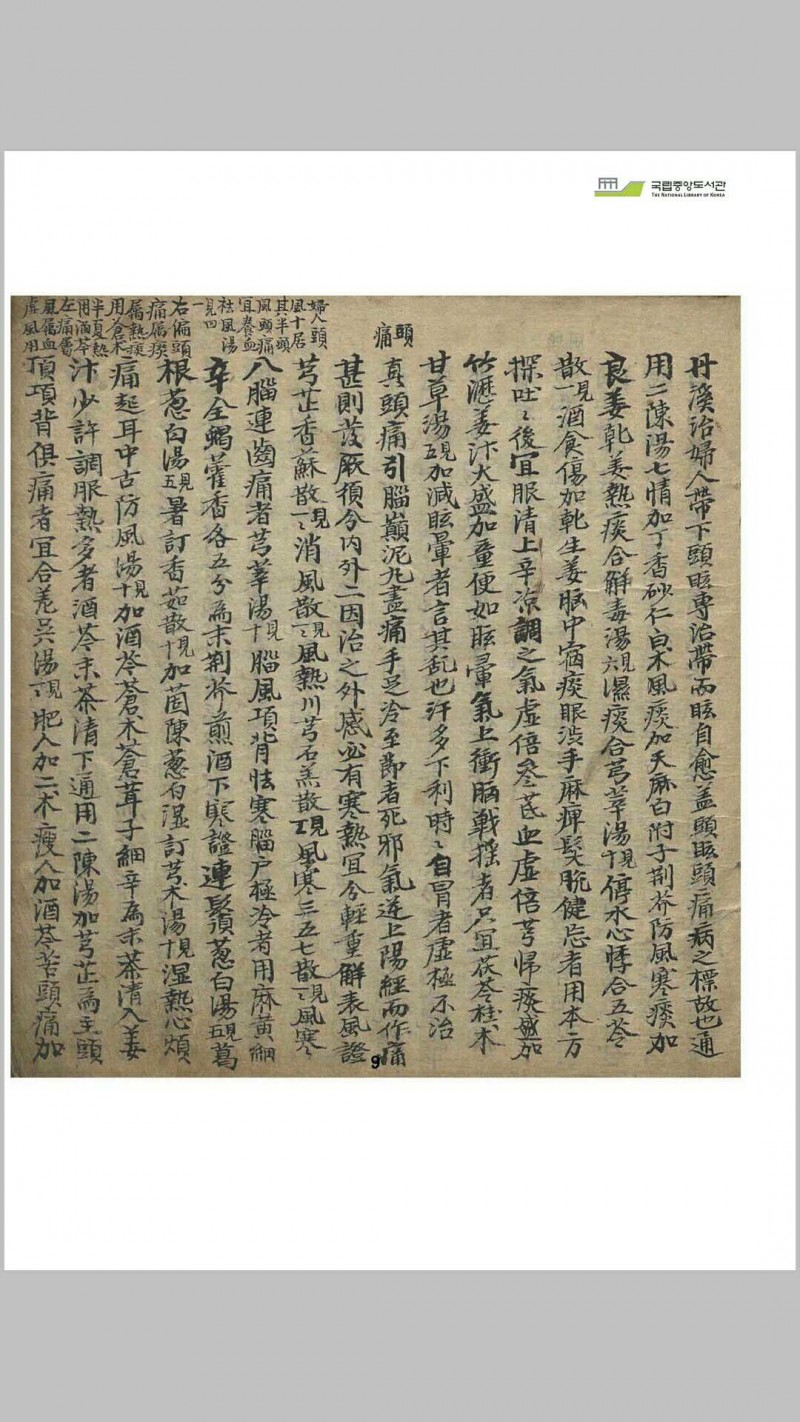 국립중앙도서관
THE NATIONAL LIBRARY OF KOREA
丹溪治婦人帶下頭眩專治帶而眩自愈盖頭眩頭痛病之標故也通
用二陳湯七情加丁香砂仁白朮風痰加天麻白附子荊芥防風寒痰加
良姜乹姜熱痰合解毒湯六見濕痰合芎莘湯十見停水心悸合五苓
散一見酒食傷加乹生姜脈中宿痰眼渋手麻痺髮脫健忘者用本方
探吐〻後宜服清上辛涼調之氣虛倍參芪血虛倍芎歸痰盛加
竹瀝姜汁火盛加童便如眩暈氣上衝胸戰搖者只宜茯苓桂朮
甘草湯五見加減眩暈者言其乱也汗多下利時〻自冒者虛極不治
頭痛
真頭痛引腦巔泥丸盡痛手足冷至節者死邪氣逆上陽經而作痛
甚則發厥須分內外二因治之外感必有寒熱宜分輕重解表風證
芎芷香蘇散一見消風散二見風熱川芎石羔散二見風寒三五七散二見風寒
入腦連齒痛者芎莘湯十見腦風項背怯寒腦户極冷者用麻黃細
辛全蝎藿香各五分為末荊芥煎酒下寒證連鬚葱白湯五見葛
根葱白湯五見暑訂香茹散十見加茵陳葱白湿訂芎朮湯十見湿熱心煩
痛起耳中古防風湯十見加酒芩蒼朮蒼茸子細辛為末茶清入姜
汁少許調服熱多者酒芩末茶清下通用二陳湯加芎芷為主頭
頂項背俱痛者宜合羌吳湯二見肥人加二朮瘦人加酒芩苦頭痛加
婦人頭
風十居
其半頭
風頭痛
宜養血
祛風湯
一見四
右偏頭
痛属痰
属熱痰
用蒼朮
半夏熱
用酒芩
左痛属
風属血
虛風用
9